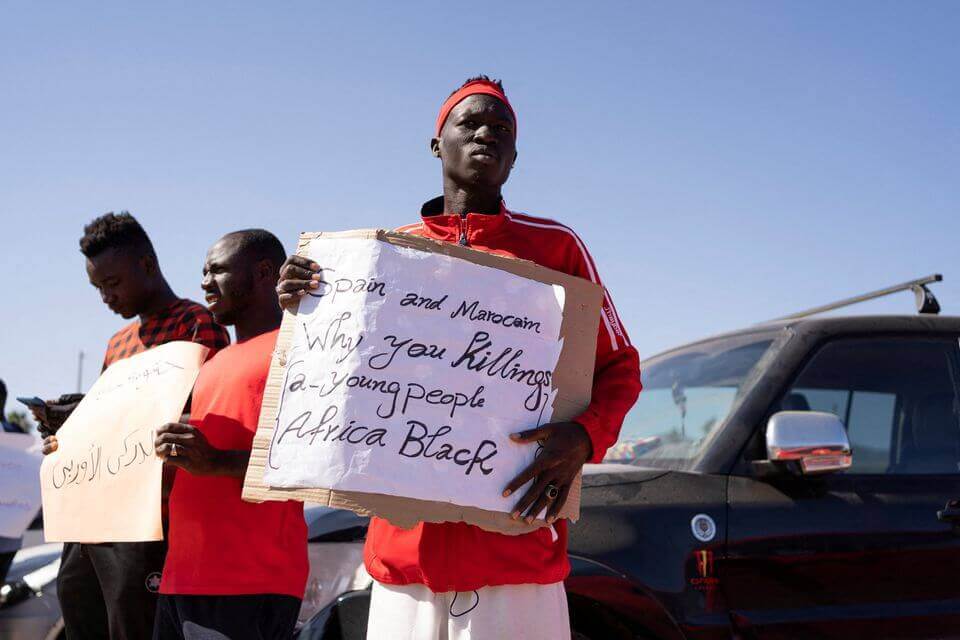 Spain and Marocain
Why you Killings
a_ young people
Africa Black
الدركي الأوربي
ESPAÑA